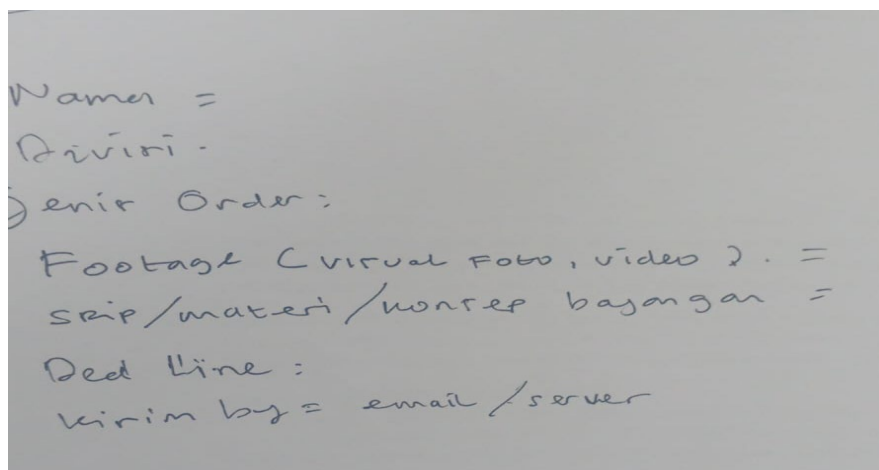 Nama =
Divisi.
Jenis Order:
Footage (visual Foto, video). =
skrip/materi/konsep bayangan =
Ded Line:
kirim by = email/server